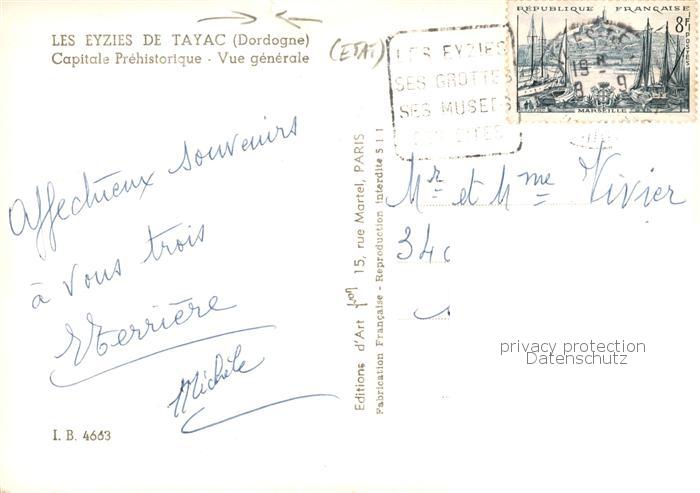 LES EYZIES DE TAYAC (Dordogne)
Capitale Préhistorique - Vue générale
(ETAT)
LES EYZIES
SES GROTTES
SES MUSEES
SITES
REPUBLIQUE FRANÇAISE
8F
POSTES
19 -
8 - 9
MARSEILLE
Affectueux souvenirs
à vous trois
Michèle
I. B. 4663
Editions d'Art Yvon 15, rue Martel, PARIS
Fabrication Française - Reproduction Interdite 5 1 1
Mr et Mme Vivier
34
privacy protection
Datenschutz